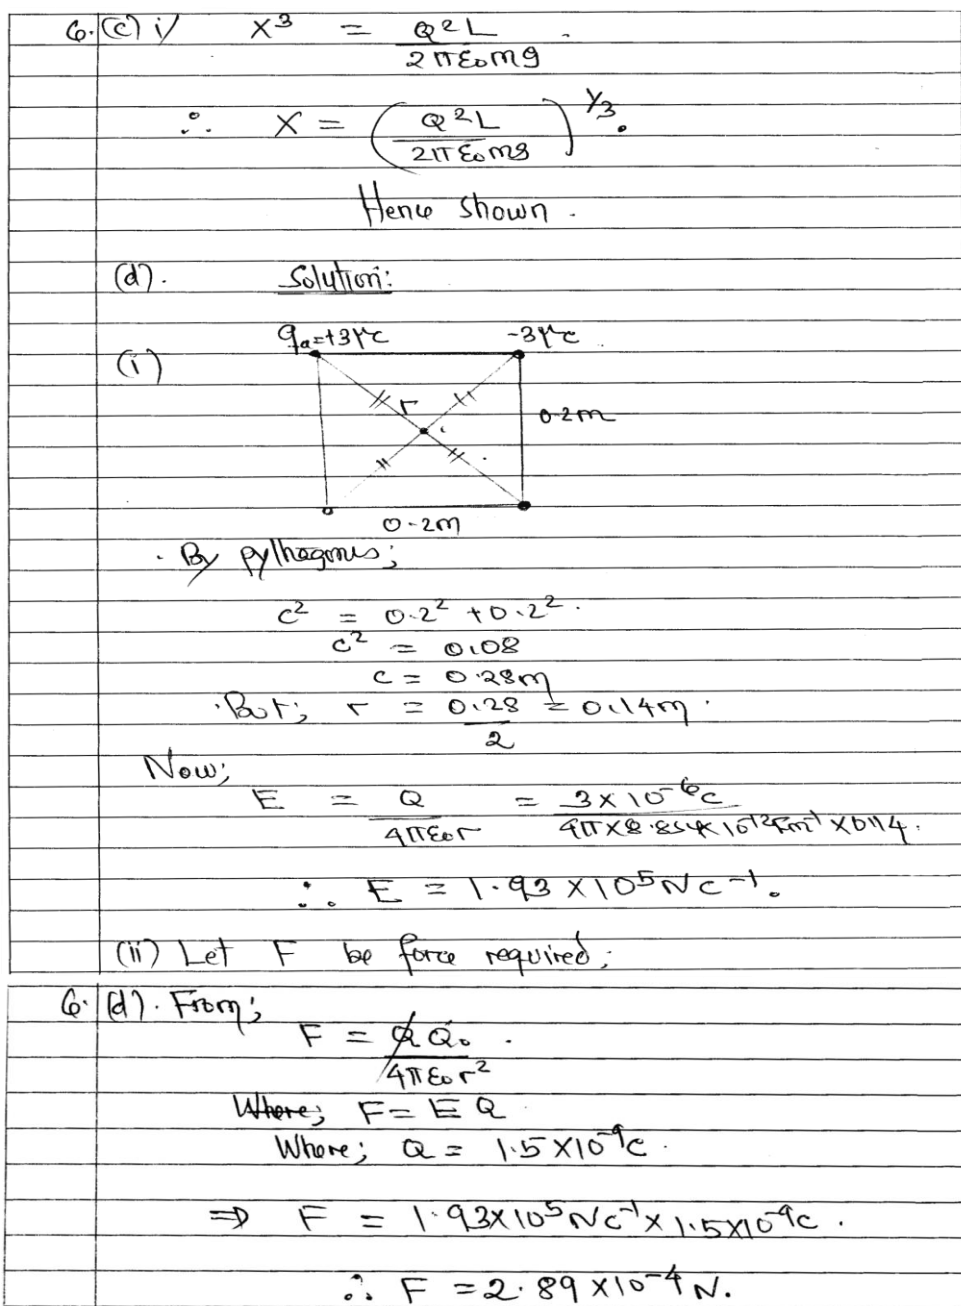 6. (c) i/ X³ = Q²L / 2πε₀mg
∴ X = (Q²L / 2πε₀mg)^1/3.
Hence shown.
(d). Solution:
(i)
qₐ=+3μc -3μc
r
0.2m
0.2m
By pythagorus;
c² = 0.2² + 0.2².
c² = 0.08
c = 0.28m
But; r = 0.28 / 2 = 0.14m.
Now;
E = Q / 4πε₀r = 3×10⁻⁶c / 4π×8.854×10⁻¹²Fm⁻¹×0.14.
∴ E = 1.93 × 10⁵ Nc⁻¹.
(ii) Let F be force required;
6. (d). From;
F = Q Q₀ / 4πε₀r².
Where; F = E Q
Where; Q = 1.5 × 10⁻⁹c.
⇒ F = 1.93×10⁵ Nc⁻¹ × 1.5×10⁻⁹c.
∴ F = 2.89 × 10⁻⁴ N.